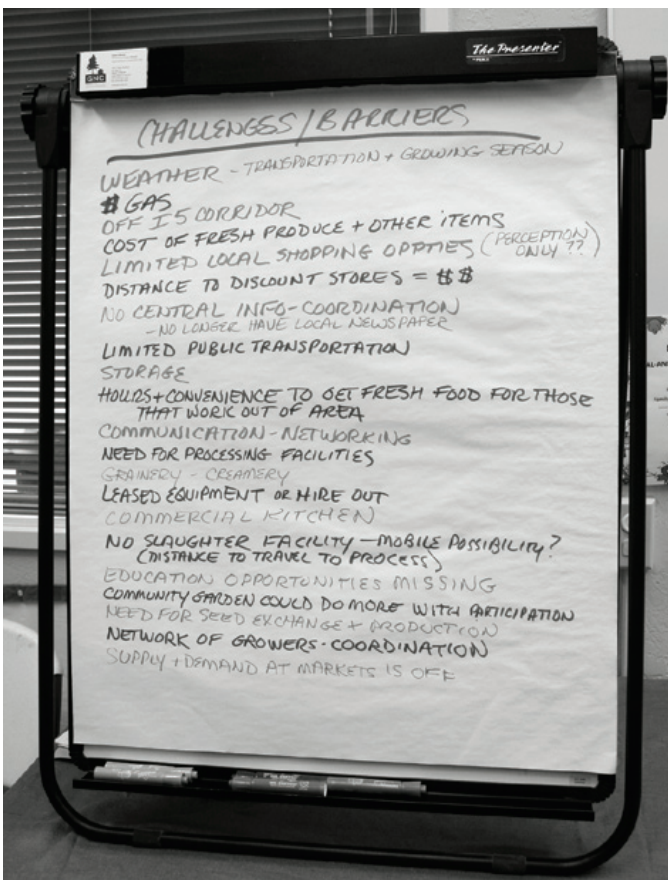 GNC
The Presenter
CHALLENGES/BARRIERS
WEATHER - TRANSPORTATION + GROWING SEASON
$ GAS
OFF I5 CORRIDOR
COST OF FRESH PRODUCE + OTHER ITEMS
LIMITED LOCAL SHOPPING OPPTIES (PERCEPTION
ONLY ??)
DISTANCE TO DISCOUNT STORES = $$
NO CENTRAL INFO-COORDINATION
- NO LONGER HAVE LOCAL NEWSPAPER
LIMITED PUBLIC TRANSPORTATION
STORAGE
HOURS + CONVENIENCE TO GET FRESH FOOD FOR THOSE
THAT WORK OUT OF AREA
COMMUNICATION - NETWORKING
NEED FOR PROCESSING FACILITIES
GRAINERY - CREAMERY
LEASED EQUIPMENT OR HIRE OUT
COMMERCIAL KITCHEN
NO SLAUGHTER FACILITY - MOBILE POSSIBILITY?
(DISTANCE TO TRAVEL TO PROCESS)
EDUCATION OPPORTUNITIES MISSING
COMMUNITY GARDEN COULD DO MORE WITH PARTICIPATION
NEED FOR SEED EXCHANGE + PRODUCTION
NETWORK OF GROWERS - COORDINATION
SUPPLY + DEMAND AT MARKETS IS OFF